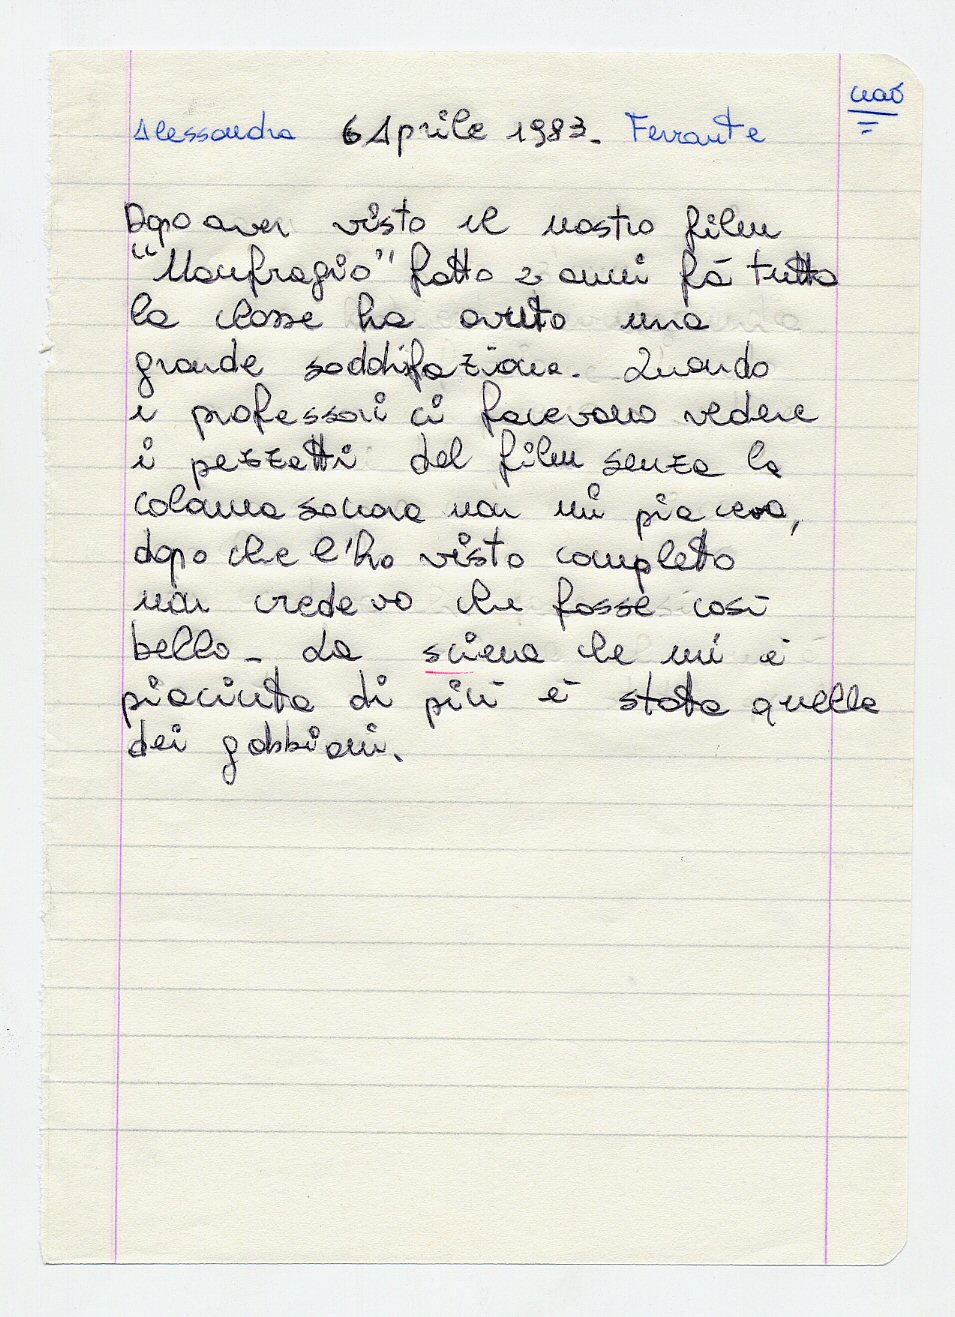 Alessandra 6 Aprile 1983. Ferrante
Dopo aver visto il nostro film
"Naufragio" fatto 2 anni fà tutta
la classe ha avuto una
grande soddifazione. Quando
i professori ci facevano vedere
i pezzetti del film senza la
colonna sonora non mi piaceva,
dopo che l'ho visto completo
non credevo che fosse così
bello. La sciena che mi è
piaciuta di più è stata quella
dei gabbiani.